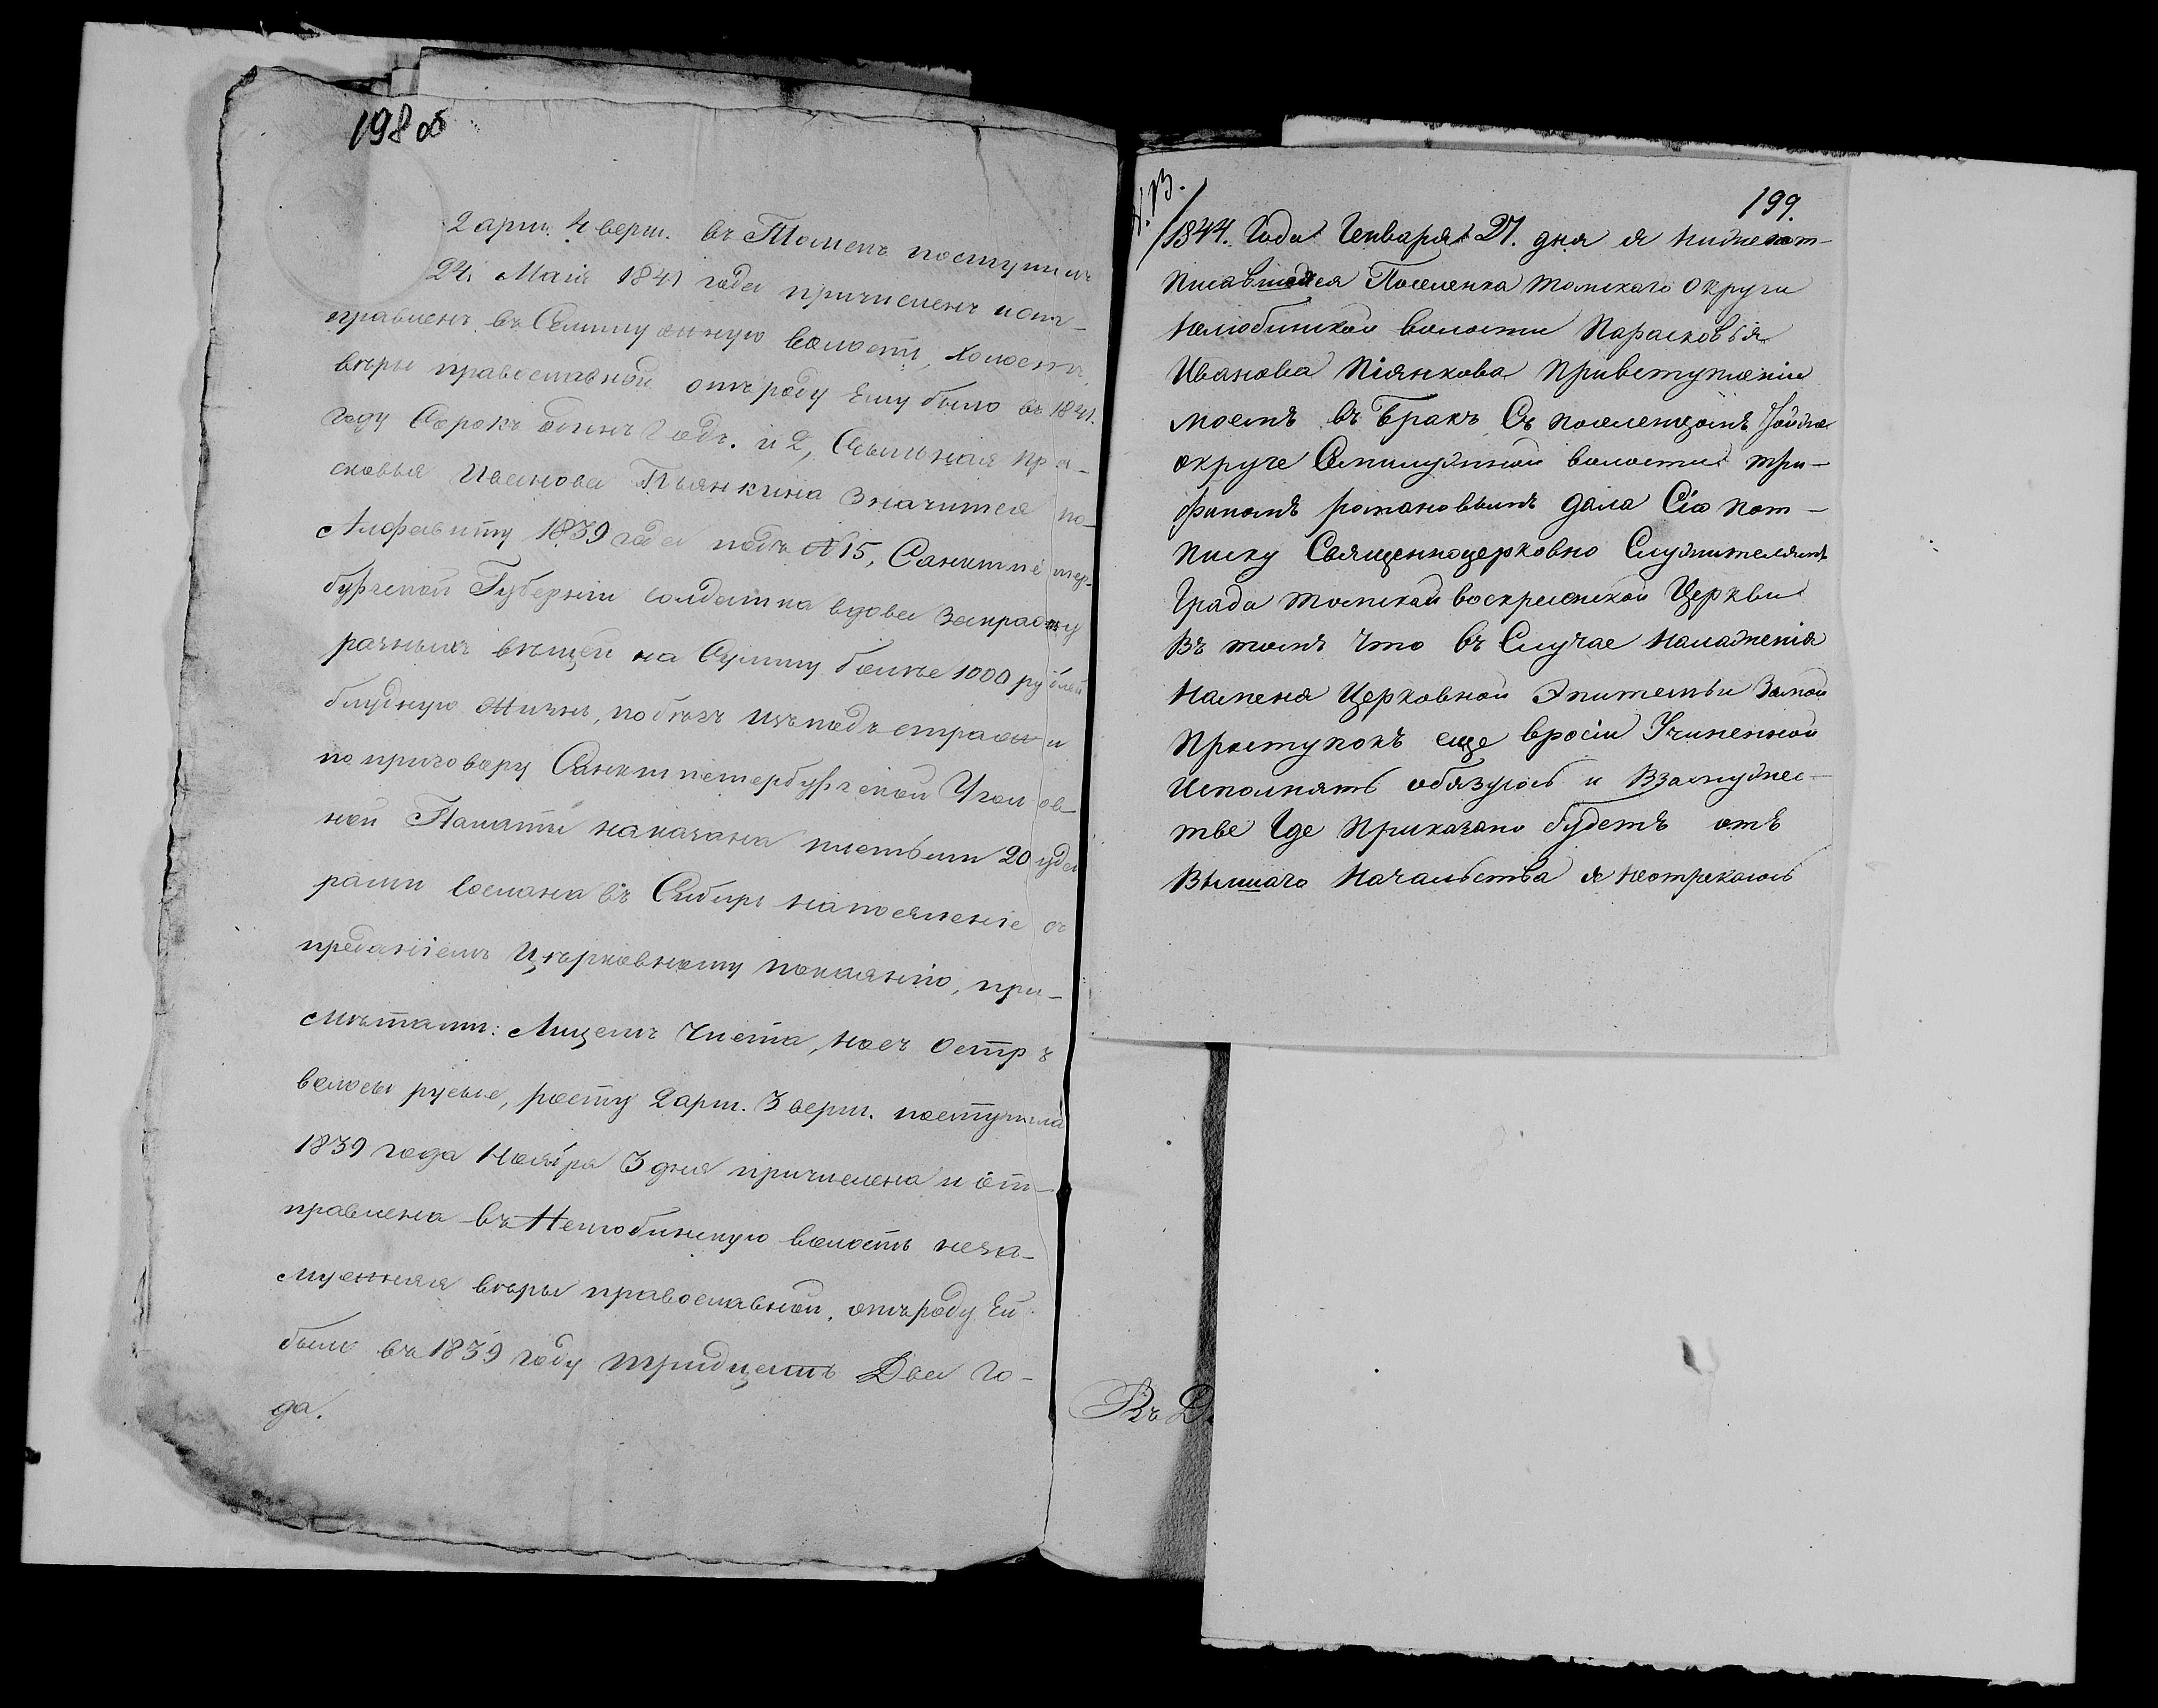 198 об
2 арш. 4 верш. въ Томскъ поступилъ
24. Маія 1841 года причисленъ и от-
правленъ въ Семилужную волость, холостъ,
вѣры православной, отъ роду ему было въ 1841.
году Сорокъ одинъ годъ. и 2, Ссыльная Пра-
сковья Иванова Пьянкина значится по
Алфавиту 1839 года подъ № 15, Санктпетер-
бургской Губерніи солдатка вдова за кражу
разныхъ вѣщей на Сумму болѣе 1000 рублей
блудную жизнь, побѣгъ изъ подъ стражи и
по приговору Санктпетербургской Уголов-
ной Палаты наказана плетьми 20 уда
рами сослана въ Сибирь на поселеніе съ
преданіемъ Цѣрковному покаянію, при-
мѣтами: Лицемъ чиста, носъ остръ
волосы русые, росту 2 арш. 3 верш. поступила
1839 года Ноября 3 дня причислена и от-
правлена въ Нелюбинскую волость неза-
мужняя вѣры православной, отъ роду Ей
было въ 1839 году тридцать Два го-
да.
199.
1844. Года Генваря 27. дня я нижепот-
писавшаяся Поселенка томскаго округи
Нелюбинской волости Парасковья
Иванова Піянкова Привступленіи
моемъ въ бракъ Съ поселенцомъ
округе Семилужной волости три-
фономъ романовымъ дала Сію пот-
писку Священноцерковно Служителямъ
Града томской воскресенской Церкви
Въ томъ что въ Случае наложенія
Наменя Церковной Эпитемьи Замой
Проступокъ еще вросіи Учиненной
Исполнять обязуюсь и Взамужес-
тве Где Приказано будетъ отъ
Вышшаго Начальства я неотрекаюсь
Въ